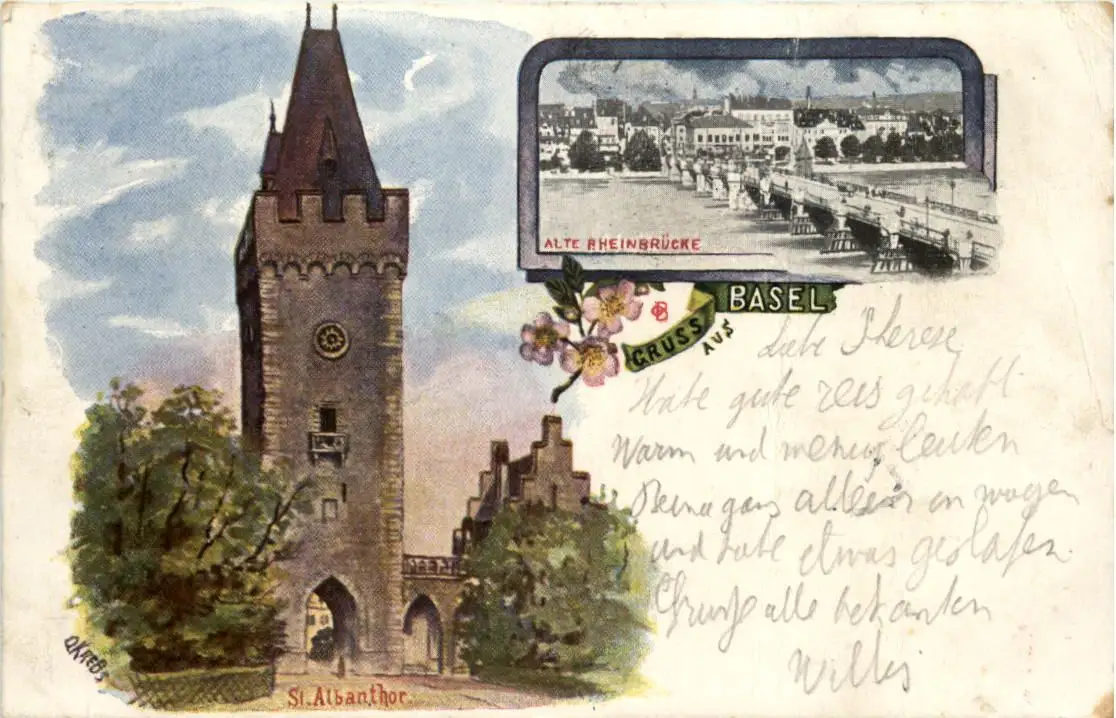 ALTE RHEINBRÜCKE
GRUSS AUS BASEL
Liebe Therese
Habe gute reis gehabt
Warm und leuten
allein en wagen
und habe etwas geslafen.
Grusse alle bekanten
Willy
OKREBS
St. Albanthor.